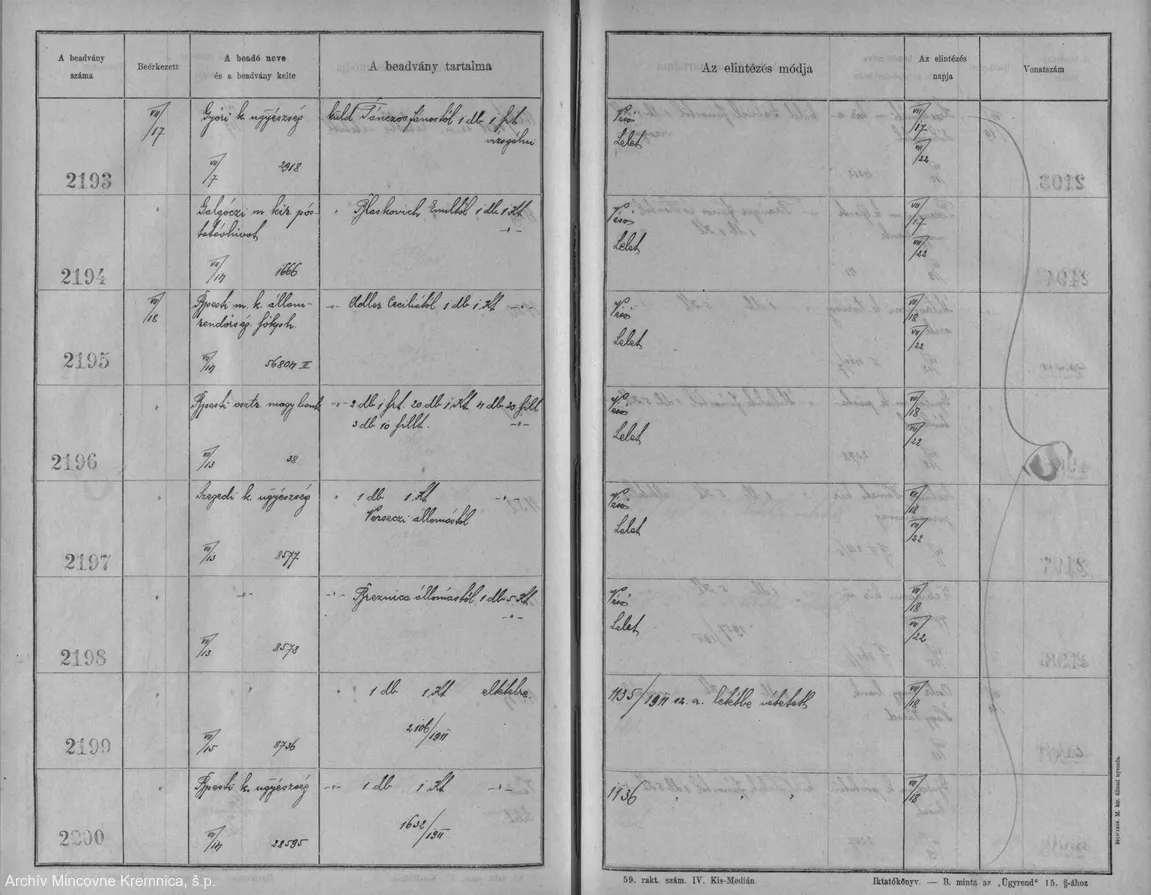 A beadvány száma
Beérkezett
A beadó neve és a beadvány kelte
A beadvány tartalma
Az elintézés módja
Az elintézés napja
Vonatszám
2193
VII/17
Győri k. ügyészség
VII/7 2918
küld Tánczos Jánostól 1 db 1 frt
vizsgálni
Véső
Lelet
VII/17
VII/22
2194
Galgóczi m. kir. pós-
VII/14 1666
" Blaskovich Emiltől 1 db 1 Kt
Véső
Lelet
VII/17
VII/22
2195
VII/18
Bpesti m. k. állam-
rendőrség főkph.
VII/14 56804 II
-"- Adler Ceciliától 1 db 1 Kt -"-
Véső
Lelet
VII/18
VII/22
2196
"
Bpesti osztr. magy bank
VII/13 38
-"- 2 db 1 frt 20 db 1 Kt 4 db 20 fill
3 db 10 fillt. -"-
Véső
Lelet
VII/18
VII/22
2197
"
Szegedi k. ügyészség
VII/13 8577
" 1 db 1 Kt -"-
Verseczi állomástól
Véső
Lelet
VII/18
VII/22
2198
" -"-
VII/13 8578
-"- Breznica állomástól 1 db 5 Kt
-"-
Véső
Lelet
VII/18
VII/22
2199
" "
VII/15 8736
" 1 db 1 Kt eltételre
2106/1911
1135/1911 sz. a. letétbe vétetett
VII/18
2200
"
Bpesti k. ügyészség
VII/14 28595
-"- 1 db 1 Kt -"-
1632/1911
1136 " " "
VII/18
59. rakt. szám. IV. Kis-Medián.
Iktatókönyv. — B. minta az „Ügyrend" 15. §-ához
Archív Mincovne Kremnica, š.p.